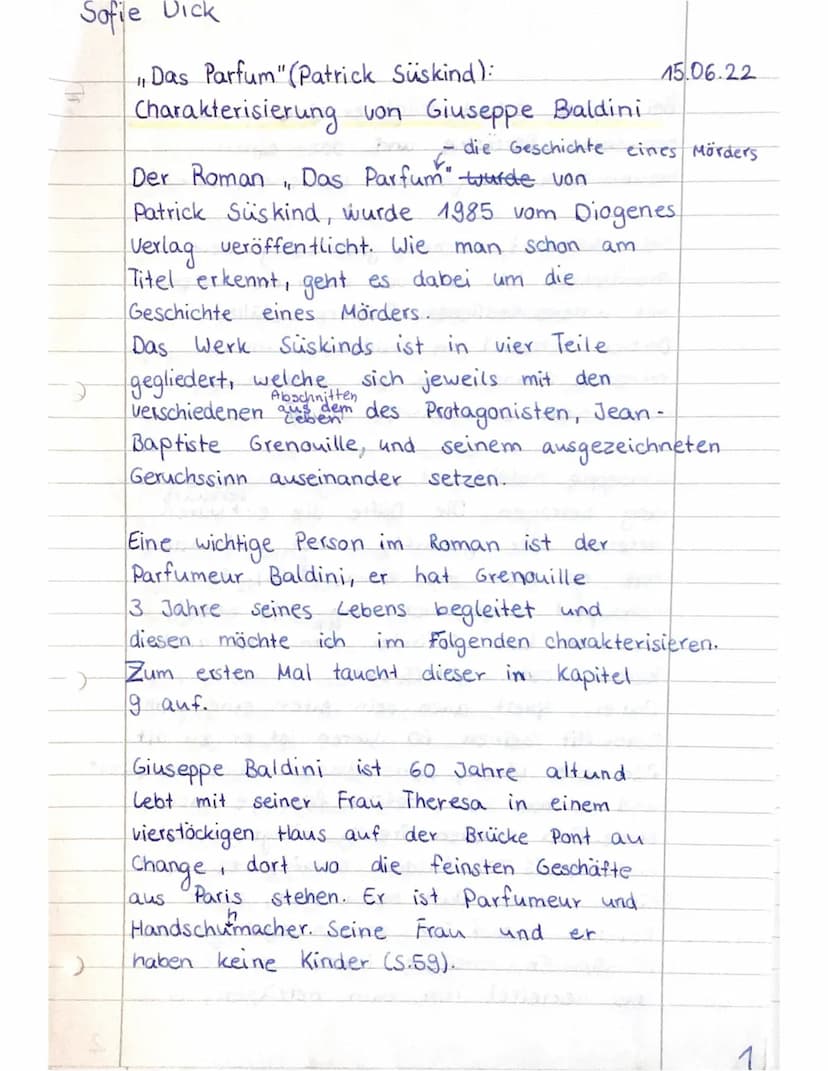 Sofie Dick
„Das Parfum" (Patrick Süskind): 15.06.22
Charakterisierung von Giuseppe Baldini
- die Geschichte eines Mörders
Der Roman „Das Parfum" wurde von
Patrick Süskind, wurde 1985 vom Diogenes
Verlag veröffentlicht. Wie man schon am
Titel erkennt, geht es dabei um die
Geschichte eines Mörders.
Das Werk Süskinds ist in vier Teile
gegliedert, welche sich jeweils mit den
verschiedenen Abschnitten aus dem Leben des Protagonisten, Jean-
Baptiste Grenouille, und seinem ausgezeichneten
Geruchssinn auseinander setzen.
Eine wichtige Person im Roman ist der
Parfumeur Baldini, er hat Grenouille
3 Jahre seines Lebens begleitet und
diesen möchte ich im Folgenden charakterisieren.
Zum ersten Mal taucht dieser in Kapitel
9 auf.
Giuseppe Baldini ist 60 Jahre alt und
lebt mit seiner Frau Theresa in einem
vierstöckigen Haus auf der Brücke Pont au
Change, dort wo die feinsten Geschäfte
aus Paris stehen. Er ist Parfumeur und
Handschuhmacher. Seine Frau und er
haben keine Kinder (S.59).
1